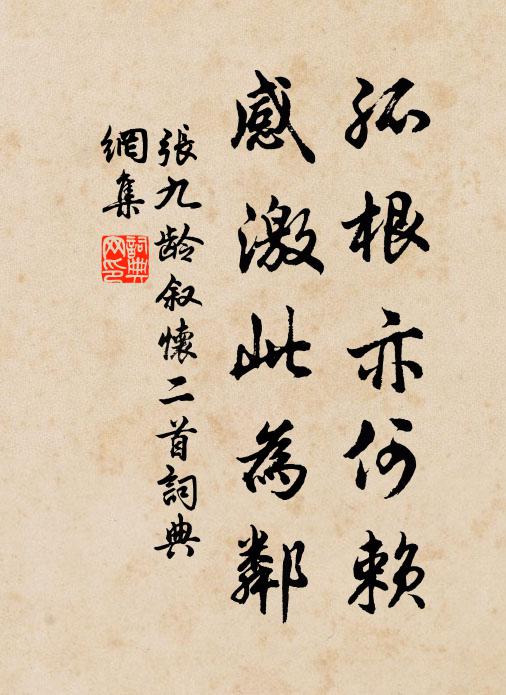 孤根亦何賴
感激此為鄰
張九龄叙懷二首詞典
網集
詞典
网印